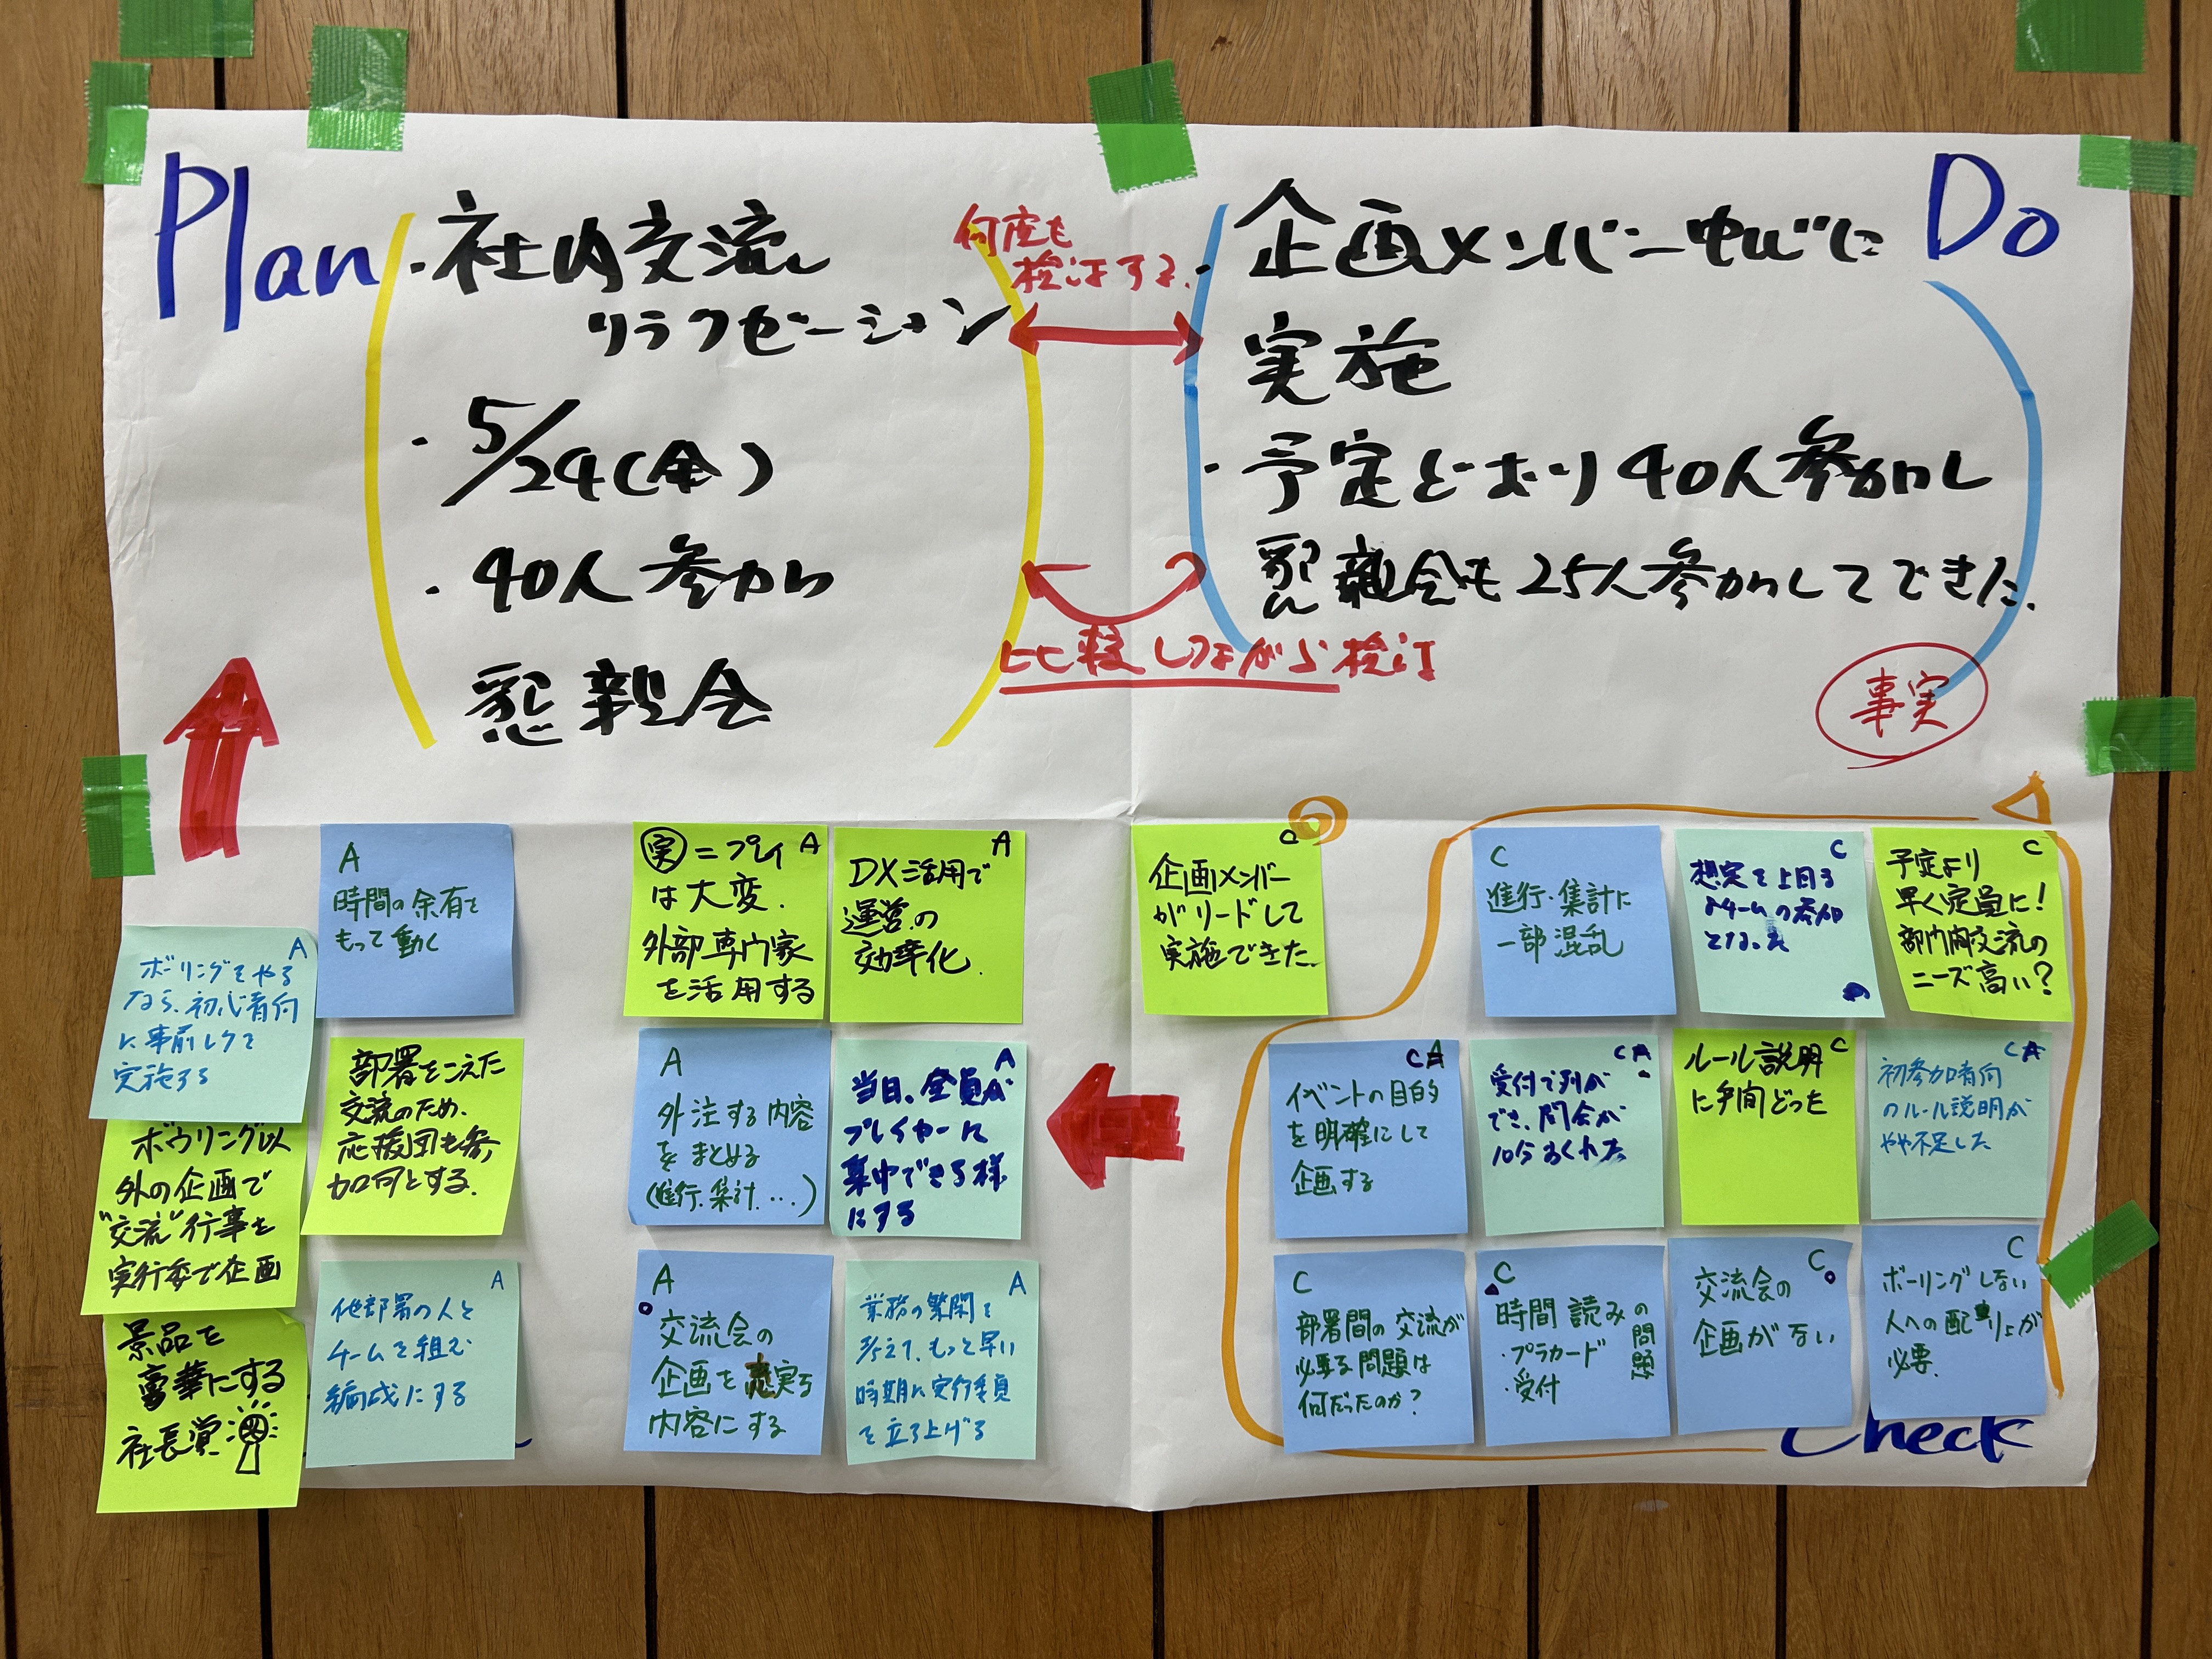 Plan
・社内交流
リラクゼーション
・5/24(金)
・40人参加
懇親会
何度も
検証する。
比較しながら検証
Do
・企画メンバー中心に
実施
・予定どおり40人参加し
懇親会も25人参加してできた。
事実
A
時間の余有を
もって動く
A
ボーリングをやる
なら、初心者向
に事前レクを
実施する
部署をこえた
交流のため、
応援団も参
加可とする。
ボウリング以
外の企画で
"交流"行事を
実行委で企画
A
他部署の人と
チームを組む
編成にする
景品を
豪華にする
社長賞
実=プレイ A
は大変.
外部専門家
を活用する
A
DX活用で
運営の
効率化.
A
外注する内容
をまとめる
(進行、集計、…)
A
当日、全員が
プレイヤーに
集中できる様
にする
A
交流会の
企画を充実する
内容にする
A
業務の繁閑を
考えて、もっと早い
時期に実行委員
を立ち上げる
企画メンバー
がリードして
実施できた.
C
進行・集計に
一部混乱
C
想定を上回る
チームの参加
となった
C
予定より
早く定員に!
部門間交流の
ニーズ高い?
CA
イベントの目的
を明確にして
企画する
CA
受付で列が
でき、開会が
10分おくれた
C
ルール説明
に手間どった
CA
初参加者向
のルール説明が
やや不足した
C
部署間の交流が
必要な問題は
何だったのか?
C
時間読みの問題
・プラカード
・受付
C
交流会の
企画がない
C
ボーリングしない
人への配りょが
必要.
Check